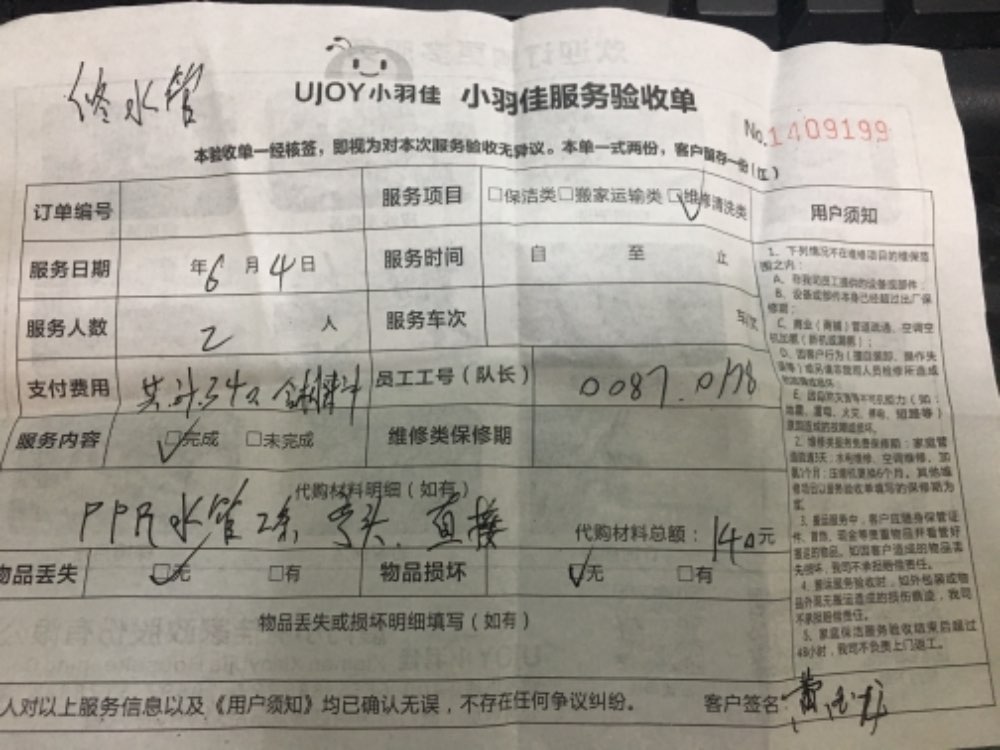 修水管
UJOY小羽佳 小羽佳服务验收单
No.1409199
本验收单一经核签，即视为对本次服务验收无异议。本单一式两份，客户留存一份（红）
订单编号 服务项目 □保洁类□搬家运输类□维修清洗类
服务日期 年6月4日 服务时间 自 至 止
服务人数 2人 服务车次 车次
支付费用 共计340 含材料 员工工号（队长） 0087.0178
服务内容 □完成 □未完成 维修类保修期
代购材料明细（如有）
PPR水管2条 弯头 直接 代购材料总额：140元
物品丢失 □无 □有 物品损坏 □无 □有
物品丢失或损坏明细填写（如有）
人对以上服务信息以及《用户须知》均已确认无误，不存在任何争议纠纷。 客户签名：黄
用户须知
1、下列情况不在维修项目的维保范
围之内：
A、非我司员工提供的设备或部件；
B、设备或部件本身已经超过出厂保
修期；
C、商业（商铺）管道疏通、空调空
机加氟（新机或漏氟）；
D、因客户行为（擅自装卸、操作失
误等）或另请非我司人员检修所造成
E、因自然灾害等不可抗力（如：
地震、雷电、火灾、停电、短路等）
原因造成的故障或损坏。
2、维修类服务免费保修期：家庭管
道疏通3天；水电维修、空调维修、加
氟1个月；压缩机更换6个月。其他维
修项目以服务验收单填写的保修期为
准。
3、搬运服务中，客户应随身保管证
件、首饰、现金等贵重物品并看管好
搬运的物品。如因客户造成的物品丢
失损坏，我司不承担赔偿责任。
4、搬运服务验收时，如外包装或物
品外观无搬运造成的损伤痕迹，我司
不承担赔偿责任。
5、家庭保洁服务验收结束后超过
48小时，我司不负责上门返工。